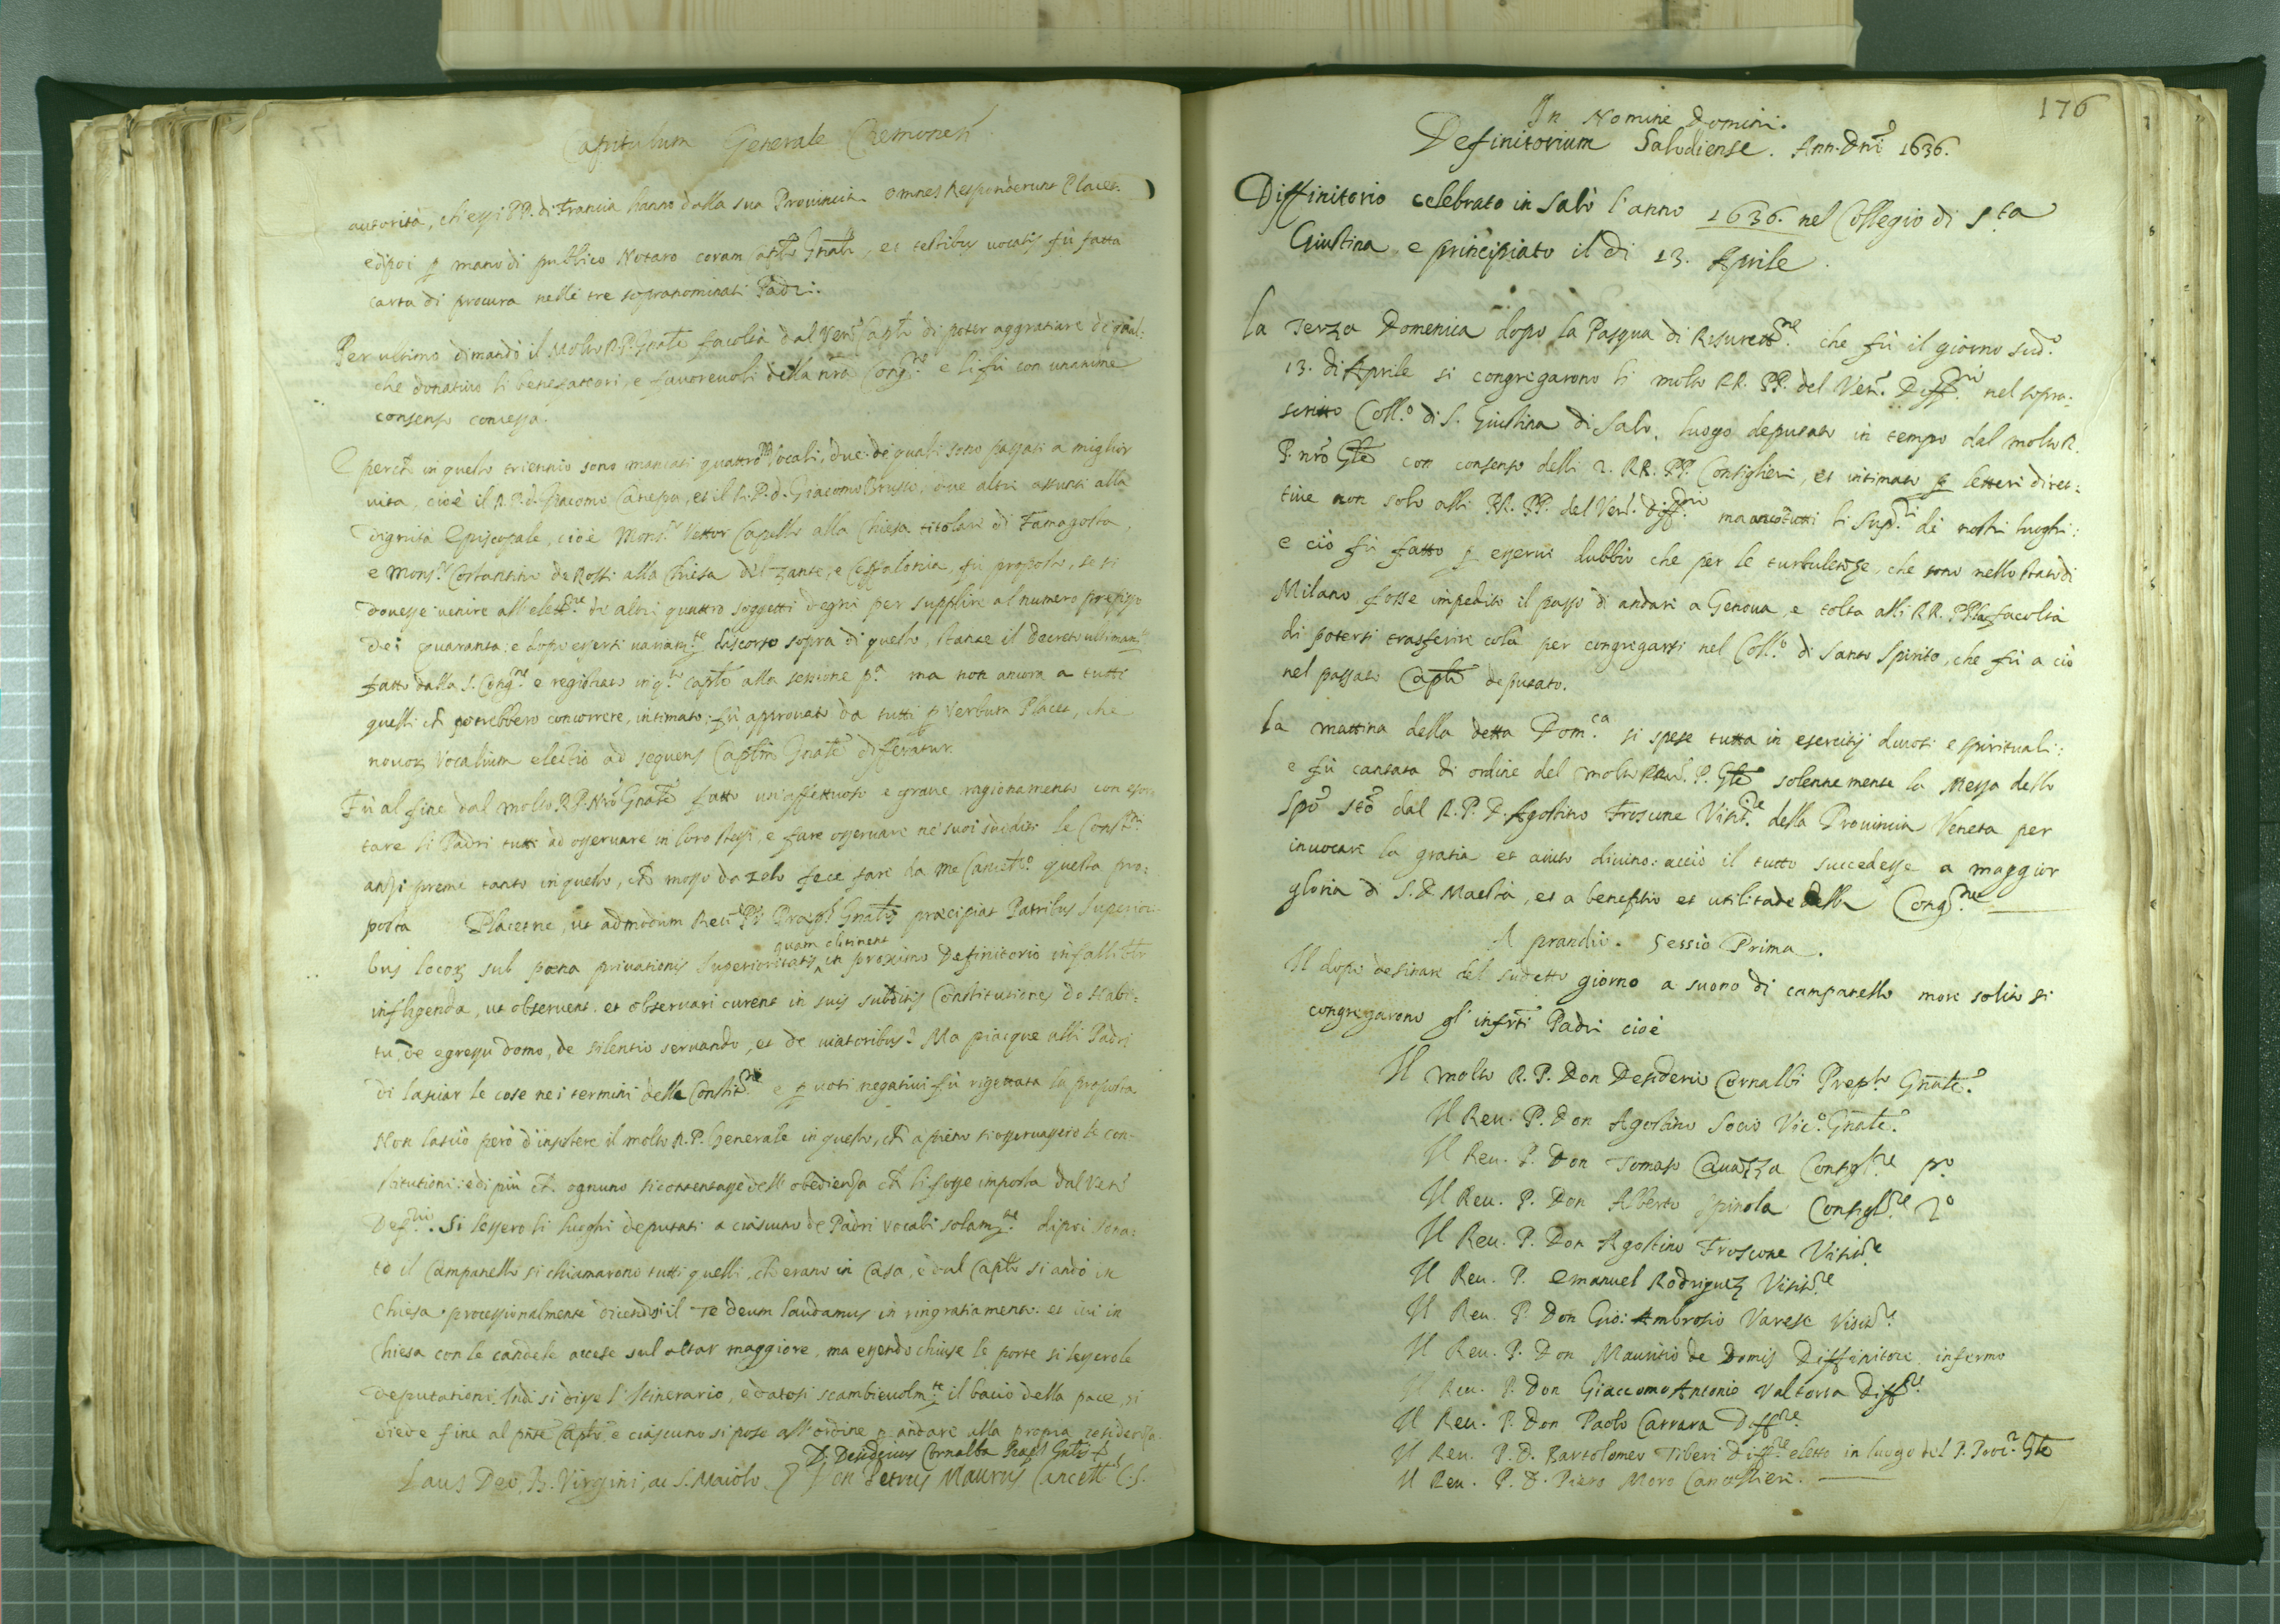 Capitulum Generale Cremonen
autorità, ch'essi PP. di Francia hanno dalla sua Provincia. omnes Responderunt Placet.
edipoi p mano di publico Notaro coram Caplo Gnali, et testibus uocatis fù fatta
carta di procura nelli tre sopranominati Padri.
Per ultimo dimandò il Molto R. P. Gnale facoltà dal Ven. Caplo di poter aggratiare di qual:
che donatiuo li benefattori, e fauoreuoli della nra Cong.ne e li fù con unanime
consenso concessa.
E perchè in questo triennio sono mancati quattro Vocali, due de quali sono passati a miglior
uita, cioè il R. P. d. Giacomo Canepa, et il R. P. d. Giacomo Brusco, due altri assunti alla
dignità Episcopale, cioè Mons.r Vettor Capello alla Chiesa titolare di Famagosta,
e Mons.r Costantino de Rossi alla Chiesa del Zante, e Ceffalonia, fù proposto, se si
douesse uenire all'elett.ne de altri quattro soggetti degni per supplire al numero prefisso
dei quaranta: e dopo essersi uariam.te discorso sopra di questo, stante il decreto ultimam.te
fatto dalla S. Cong.ne e registrato in q.to Caplo alla sessione p.a ma non ancora a tutti
quelli ch potrebbero concorrere, intimato; fù approuato da tutti p Verbum Placet, che
nouor Vocalium electio ad sequens Caplm Gnale differatur.
Fù al fine dal molto R. P. Nro Gnale fatto un'affettuoso e graue ragionamento con essor
tare li Padri tutti ad osseruare in loro stessi, e fare osseruare ne suoi sudditi le Const.ni
anzi premè tanto in questo, ch mosso da zelo fece fare da me Cancell.o questa pro:
posta Placetne, ut admodum Reu. P. Præp. Gnalis præcipiat Patribus Superiori
bus locor sub pœna priuationis Superioritatis quam obtinent in proximo Definitorio infallibilr
infligenda, ut obseruent. et obseruari curent in suis subditis Constitutiones de Habi:
tu, de egressu domo, de silentio seruando, et de uiatoribus? Ma piacque alli Padri
di lasciar le cose nei termini delle Constit.ni e p uoti negatiui fù rigettata la proposta
Non lasciò però d'insistere il molto R. P. Generale in questo, ch a pieno si osseruassero le con-
stitutioni: edi più ch ognuno si contentasse dell'obedienza ch li fosse imposta dal Ven.
Def.rio. Si lessero li luoghi deputati a ciascuno de Padri vocali solam.te dipoi sona:
to il Campanello si chiamarono tutti quelli, ch'erano in Casa, e dal Caplo si andò in
Chiesa processionalmente dicendosi il Te deum laudamus in ringratiamento. et iui in
Chiesa con le candele accese sul altar maggiore, ma essendo chiuse le porte si lessero le
deputationi. Indi si disse l'Itinerario, e datosi scambieuolm.te il bacio della pace, si
diede fine al pnte Caplo, e ciascuno si pose all'ordine p andare alla propria residenza.
D. Desiderius Cornalba Præp. Gnlis
Laus Deo, B. Virgini, ac S. Maiolo. Don Petrus Maurus Cancell.s C. S.
176
In Nomine Domini.
Definitorium Salodiense. Ann. Dni 1636.
Diffinitorio celebrato in Salò l'anno 1636. nel Collegio di S.ta
Giustina, e principiato il di 13. Aprile.
La Terza Domenica dopo la Pasqua di Resurett.ne che fù il giorno sud.o
13. di Aprile si congregarono li molto RR. PP. del Ven. Diff.rio nel sopra:
scritto Coll.o di S. Giustina di Salò, luogo deputato in tempo dal molto R.
P. nro Gle con consenso delli 2. RR. PP. Consiglieri, et intimato p letteri diret:
tiue non solo alli RR. PP. del Ven. Diff.rio ma anco tutti li Sup.ri de nostri luoghi:
e ciò fù fatto p esserui dubbio che per le turbulenze, che sono nello stato di
Milano fosse impedito il passo di andare a Genoua, e tolta alli RR. PP. la facoltà
di potersi trasferire colà per congregarsi nel Coll.o di Santo Spirito, che fù a ciò
nel passato Caplo deputato.
La mattina della detta Dom.ca si spese tutta in esercitij diuoti e spirituali:
e fù cantata di ordine del molto Reu. P. Gle solennemente la Messa dello
Spo Sto dal R. P. D. Agostino Froscione Visit.re della Prouincia Veneta per
inuocare la gratia et aiuto diuino: acciò il tutto succedesse a maggior
gloria di S. D. Maestà, et a benefitio et utilitade della Cong.ne
A prandio. Sessio Prima.
Il dopo desinare del sudetto giorno a suono di campanello more solito si
congregarono gl'infrti Padri cioè
Il molto R. P. Don Desiderio Cornalbi Prep.to Gnale.
Il Reu. P. Don Agostino Socio Vic.o Gnale.
Il Reu. P. Don Tomaso Cauazza Consigl.re p.o
Il Reu. P. Don Alberto Spinola Consigl.re 2.o
Il Reu. P. Don Agostino Froscione Visit.re
Il Reu. P. Emanuel Rodriguez Visit.re
Il Reu. P. Don Gio: Ambrosio Varese Visit.re
Il Reu. P. Don Mauritio de Domis Diffinitore infermo
Il Reu. P. Don Giaccomo Antonio Valtorta Diff.re
Il Reu. P. Don Paolo Carrara Diff.re
Il Reu. P. D. Bartolomeo Tiberi Diff.re eletto in luogo del P. Proc.r Gle
Il Reu. P. D. Piero Moro Cancellieri.